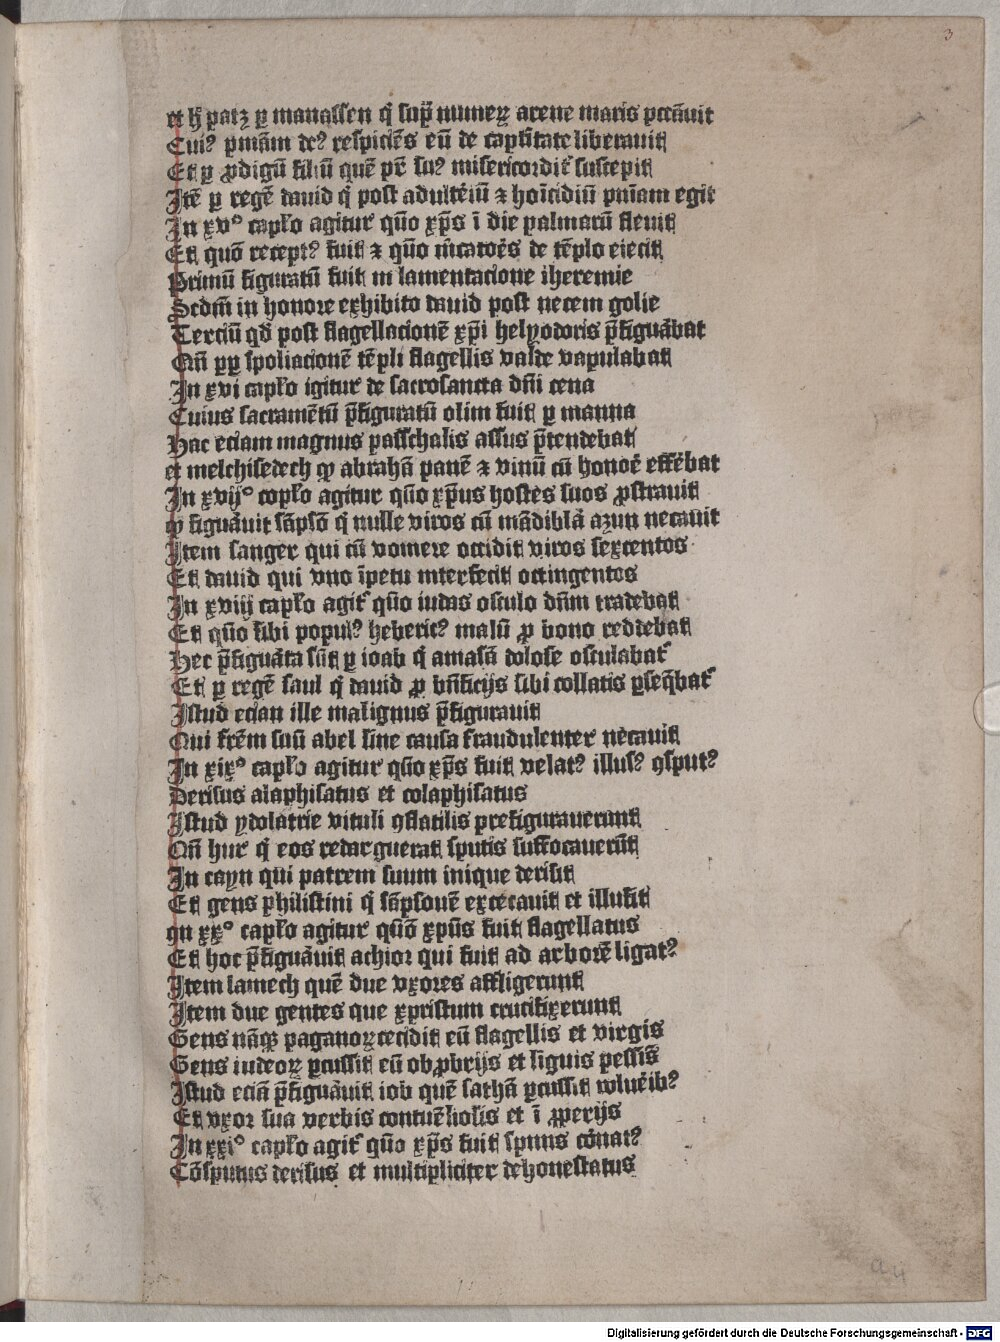 3
et h̄ patꝫ ꝑ manassen q̇ sup̄ numeꝝ arene maris pccāuit
Cuiꝰ pniam deꝰ respiciēs eū de captitate liberauit
Et ꝑ ꝓdigū filiū quē pr̄ suꝰ misericordit̄ suscepit
Itē ꝑ regē dauid q̇ post adulteiū ⁊ hoīcidiū pniam egit
In xvᵒ caplo agitur quō xp̄s ī die palmarū fleuit
Et quō receptꝰ fuit ⁊ quō m̄catoēs de tēplo eiecit
Primū figuratū fuit in lamentacione iheremie
Scdm̄ in honore exhibito dauid post necem golie
Terciū qd̄ post flagellacionē xp̄i helyodoris p̄figuābat
Qm̄ ꝓꝑ spoliacionē tēpli flagellis valde vapulabat
In xvi caplo igitur de sacrosancta dn̄i cena
Cuius sacramētū p̄figuratū olim fuit ꝑ manna
Hac eciam magnus passchalis assus p̄tendebat
et melchisedech qꝫ abrahā panē ⁊ vinū cū honoē effēbat
In xvijᵒ coplo agitur quō xp̄us hostes suos ꝓstrauit
qꝫ figuāuit sāpsō q̇ mille viros cū mādiblā azun necauit
Item sanger qui cū vomere occidit viros sexcentos
Et dauid qui vno īpetu interfecit octingentos
In xviij caplo agit̄ quō iudas osculo dn̄m tradebat
Et quō sibi populꝰ hebericꝰ malū ꝓ bono reddebat
Hec p̄figuāta sūt ꝑ ioab q̇ amasā dolose osculabat̄
Et ꝑ regē saul q̇ dauid ꝓ bn̄ficijs sibi collatis ꝑseqbat̄
Istud ecian ille malignus p̄figurauit
Qui frēm suū abel sine causa fraudulenter necauit
In xixᵒ caplo agitur quō xp̄s fuit velatꝰ illusꝰ ꝯsputꝰ
Derisus alaphisatus et colaphisatus
Istud ydolatrie vituli ꝯflatilis prefigurauerunt
Qm̄ hur q̇ eos redarguerat sputis suffocauerūt
In cayn qui patrem suum inique derisit
Et gens philistini q̇ sāpsonē excecauit et illusit
qn xxᵒ caplo agitur quō xpūs fuit flagellatus
Et hoc p̄figuāuit achior qui fuit ad arborē ligatꝰ
Item lamech quē due vxores affligerunt
Item due gentes que xpristum crucifixerunt
Gens nāqꝫ paganoꝝ cecidit eū flagellis et virgis
Gens iudeoꝝ ꝑcussit eū obꝓbrijs et liguis pessīs
Istud eciā p̄figuāuit iob quē sathā ꝑcussit vlnēibꝰ
Et vxor sua verbis contuēliolis et ī ꝓperijs
In xxiᵒ caplo agit̄ quō xp̄s fuit spinis cōnatꝰ
Cōsputus derisus et multipliciter dehonestatus
a 4
Digitalisierung gefördert durch die Deutsche Forschungsgemeinschaft - DFG